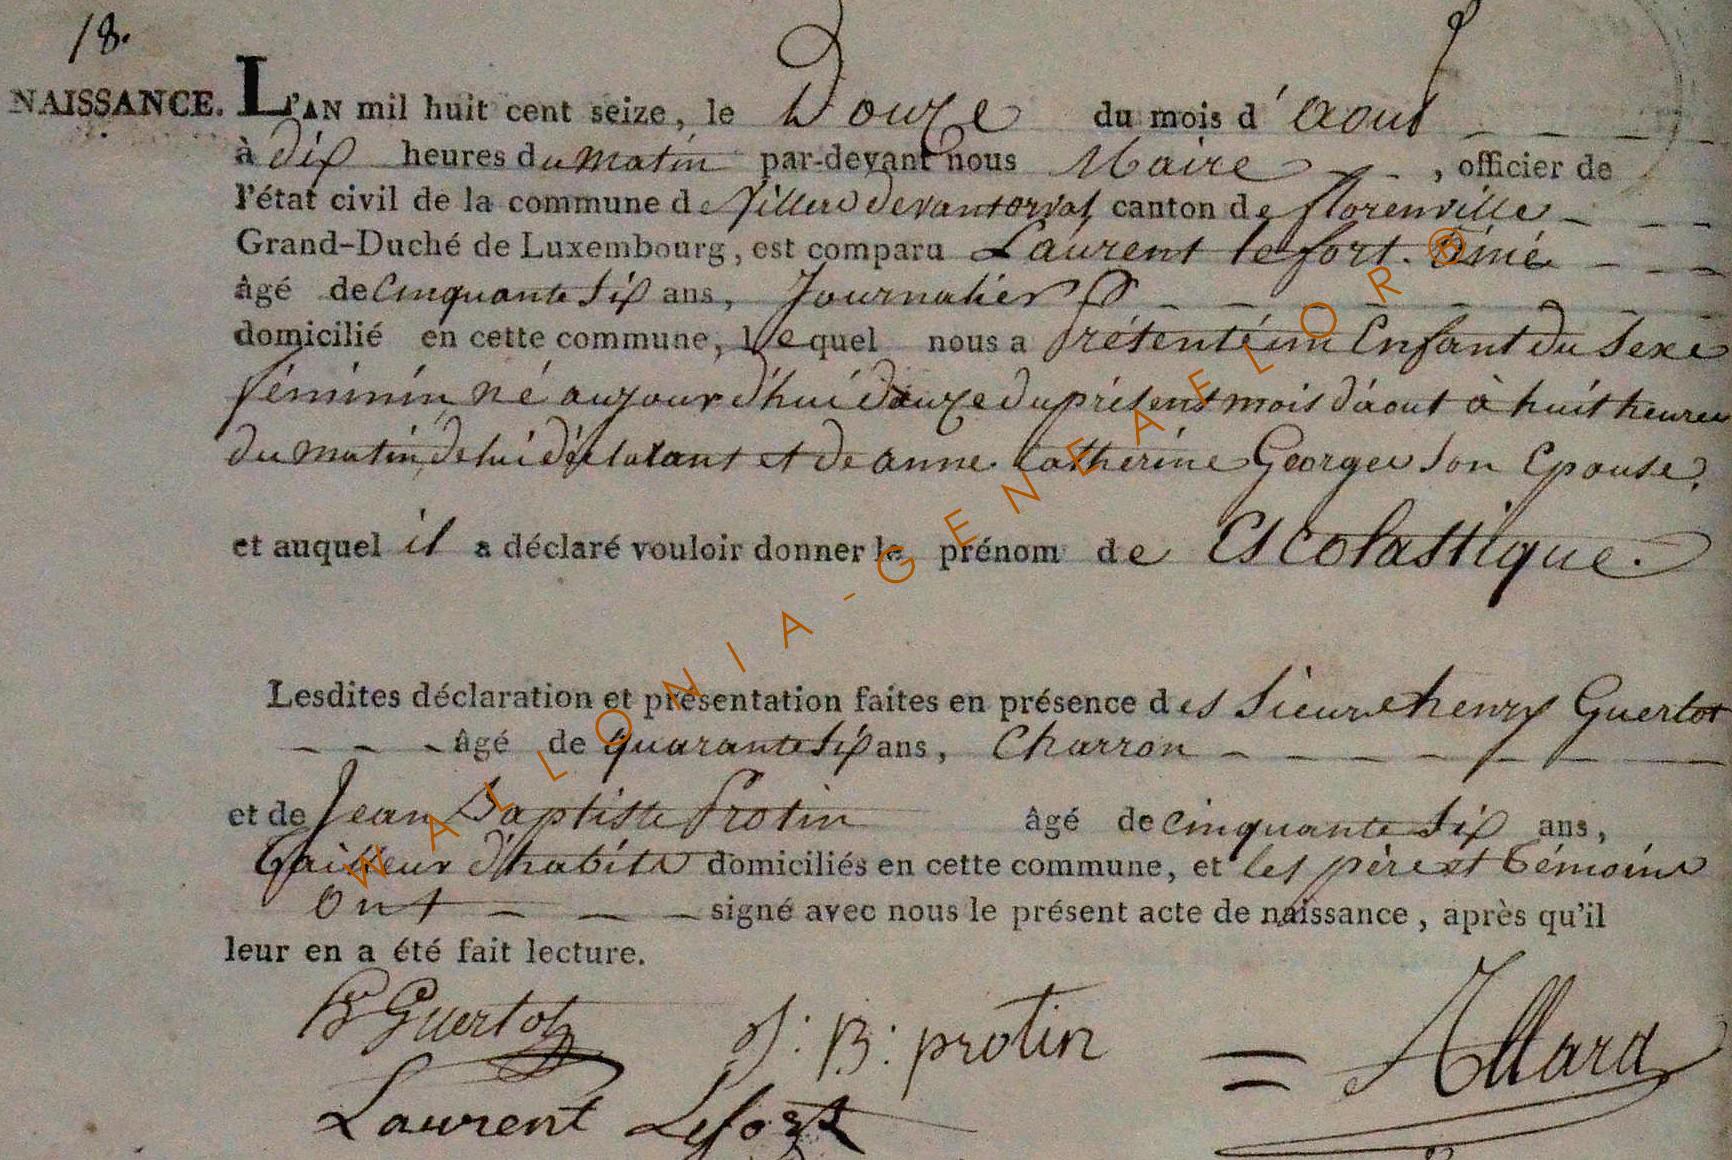 18.
NAISSANCE. L'AN mil huit cent seize, le Douze du mois d'aout
à dix heures du matin par-devant nous Maire, officier de
l'état civil de la commune de Villers devant orval canton de florenville
Grand-Duché de Luxembourg, est comparu Laurent lefort. ainé
âgé de cinquante six ans, Journalier
domicilié en cette commune, lequel nous a présenté un Enfant du Sexe
féminin né aujourd'hui douze du présent mois d'aout à huit heures
du matin de lui déclarant et de anne Catherine Georges son Epouse.
et auquel il a déclaré vouloir donner le prénom de Escolastique.
Lesdites déclaration et présentation faites en présence des Sieurs henry Guertot
âgé de quarante six ans, Charron
et de Jean Baptiste Protin âgé de cinquante six ans,
tailleur d'habits domiciliés en cette commune, et les père et témoins
ont signé avec nous le présent acte de naissance, après qu'il
leur en a été fait lecture.
Guertot J: B: protin = Allard
Laurent Lefort
WALLONIA-GENEAFLOR®